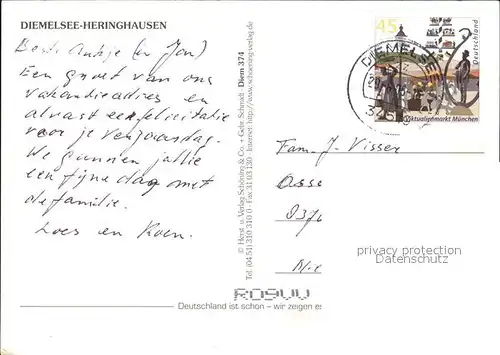 DIEMELSEE-HERINGHAUSEN
Beste Antje (en Jan)
Een groet van ons
vakantieadres en
alvast een felicitatie
voor je verjaardag.
We gunnen jullie
een fijne dag met
de familie.
Loes en Koen.
© Herst. u. Verlag Schöning & Co. + Gebr. Schmidt · Diem 374
Tel. (04 51) 310 310 0 · Fax 31 03 130 · Internet: http://www.schoening-verlag.de
45
Deutschland
Viktualienmarkt München
DIEMELSEE
Fam. J. Visser
privacy protection
Datenschutz
Deutschland ist schön – wir zeigen es